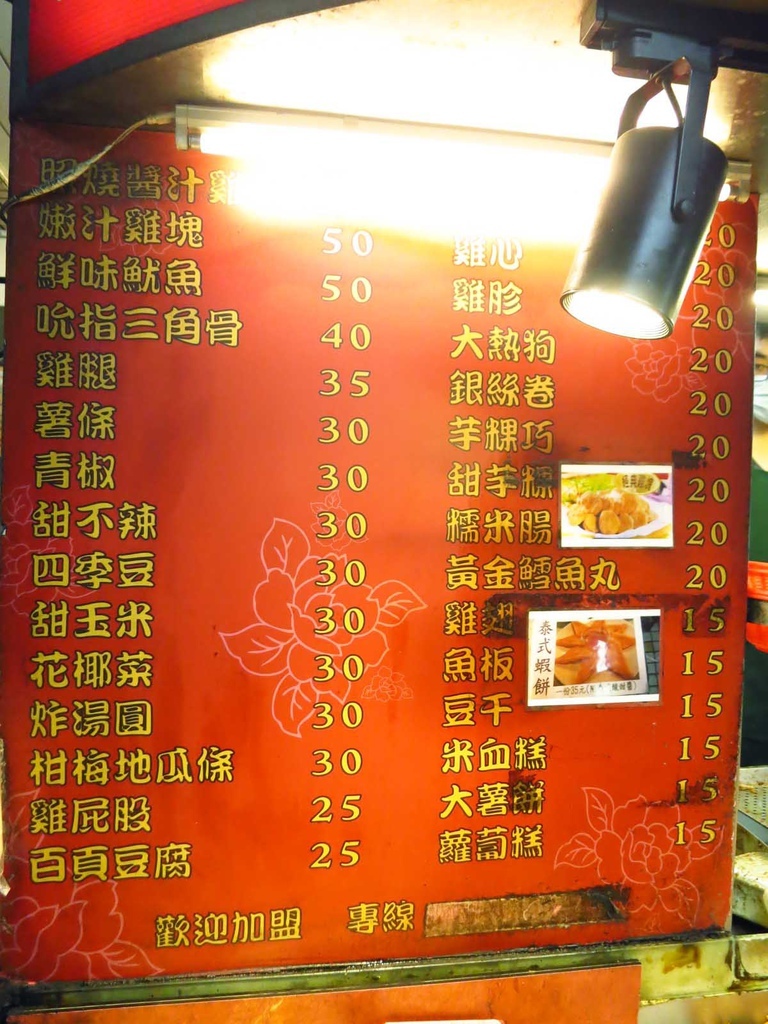 照燒醬汁雞
嫩汁雞塊 50
鮮味魷魚 50
吮指三角骨 40
雞腿 35
薯條 30
青椒 30
甜不辣 30
四季豆 30
甜玉米 30
花椰菜 30
炸湯圓 30
柑梅地瓜條 30
雞屁股 25
百頁豆腐 25
20
雞心 20
雞胗 20
大熱狗 20
銀絲卷 20
芋粿巧 20
甜芋粿 20
糯米腸 20
黃金鱈魚丸 20
雞翅 15
魚板 15
豆干 15
米血糕 15
大薯餅 15
蘿蔔糕 15
泰式蝦餅
一份35元
歡迎加盟 專線